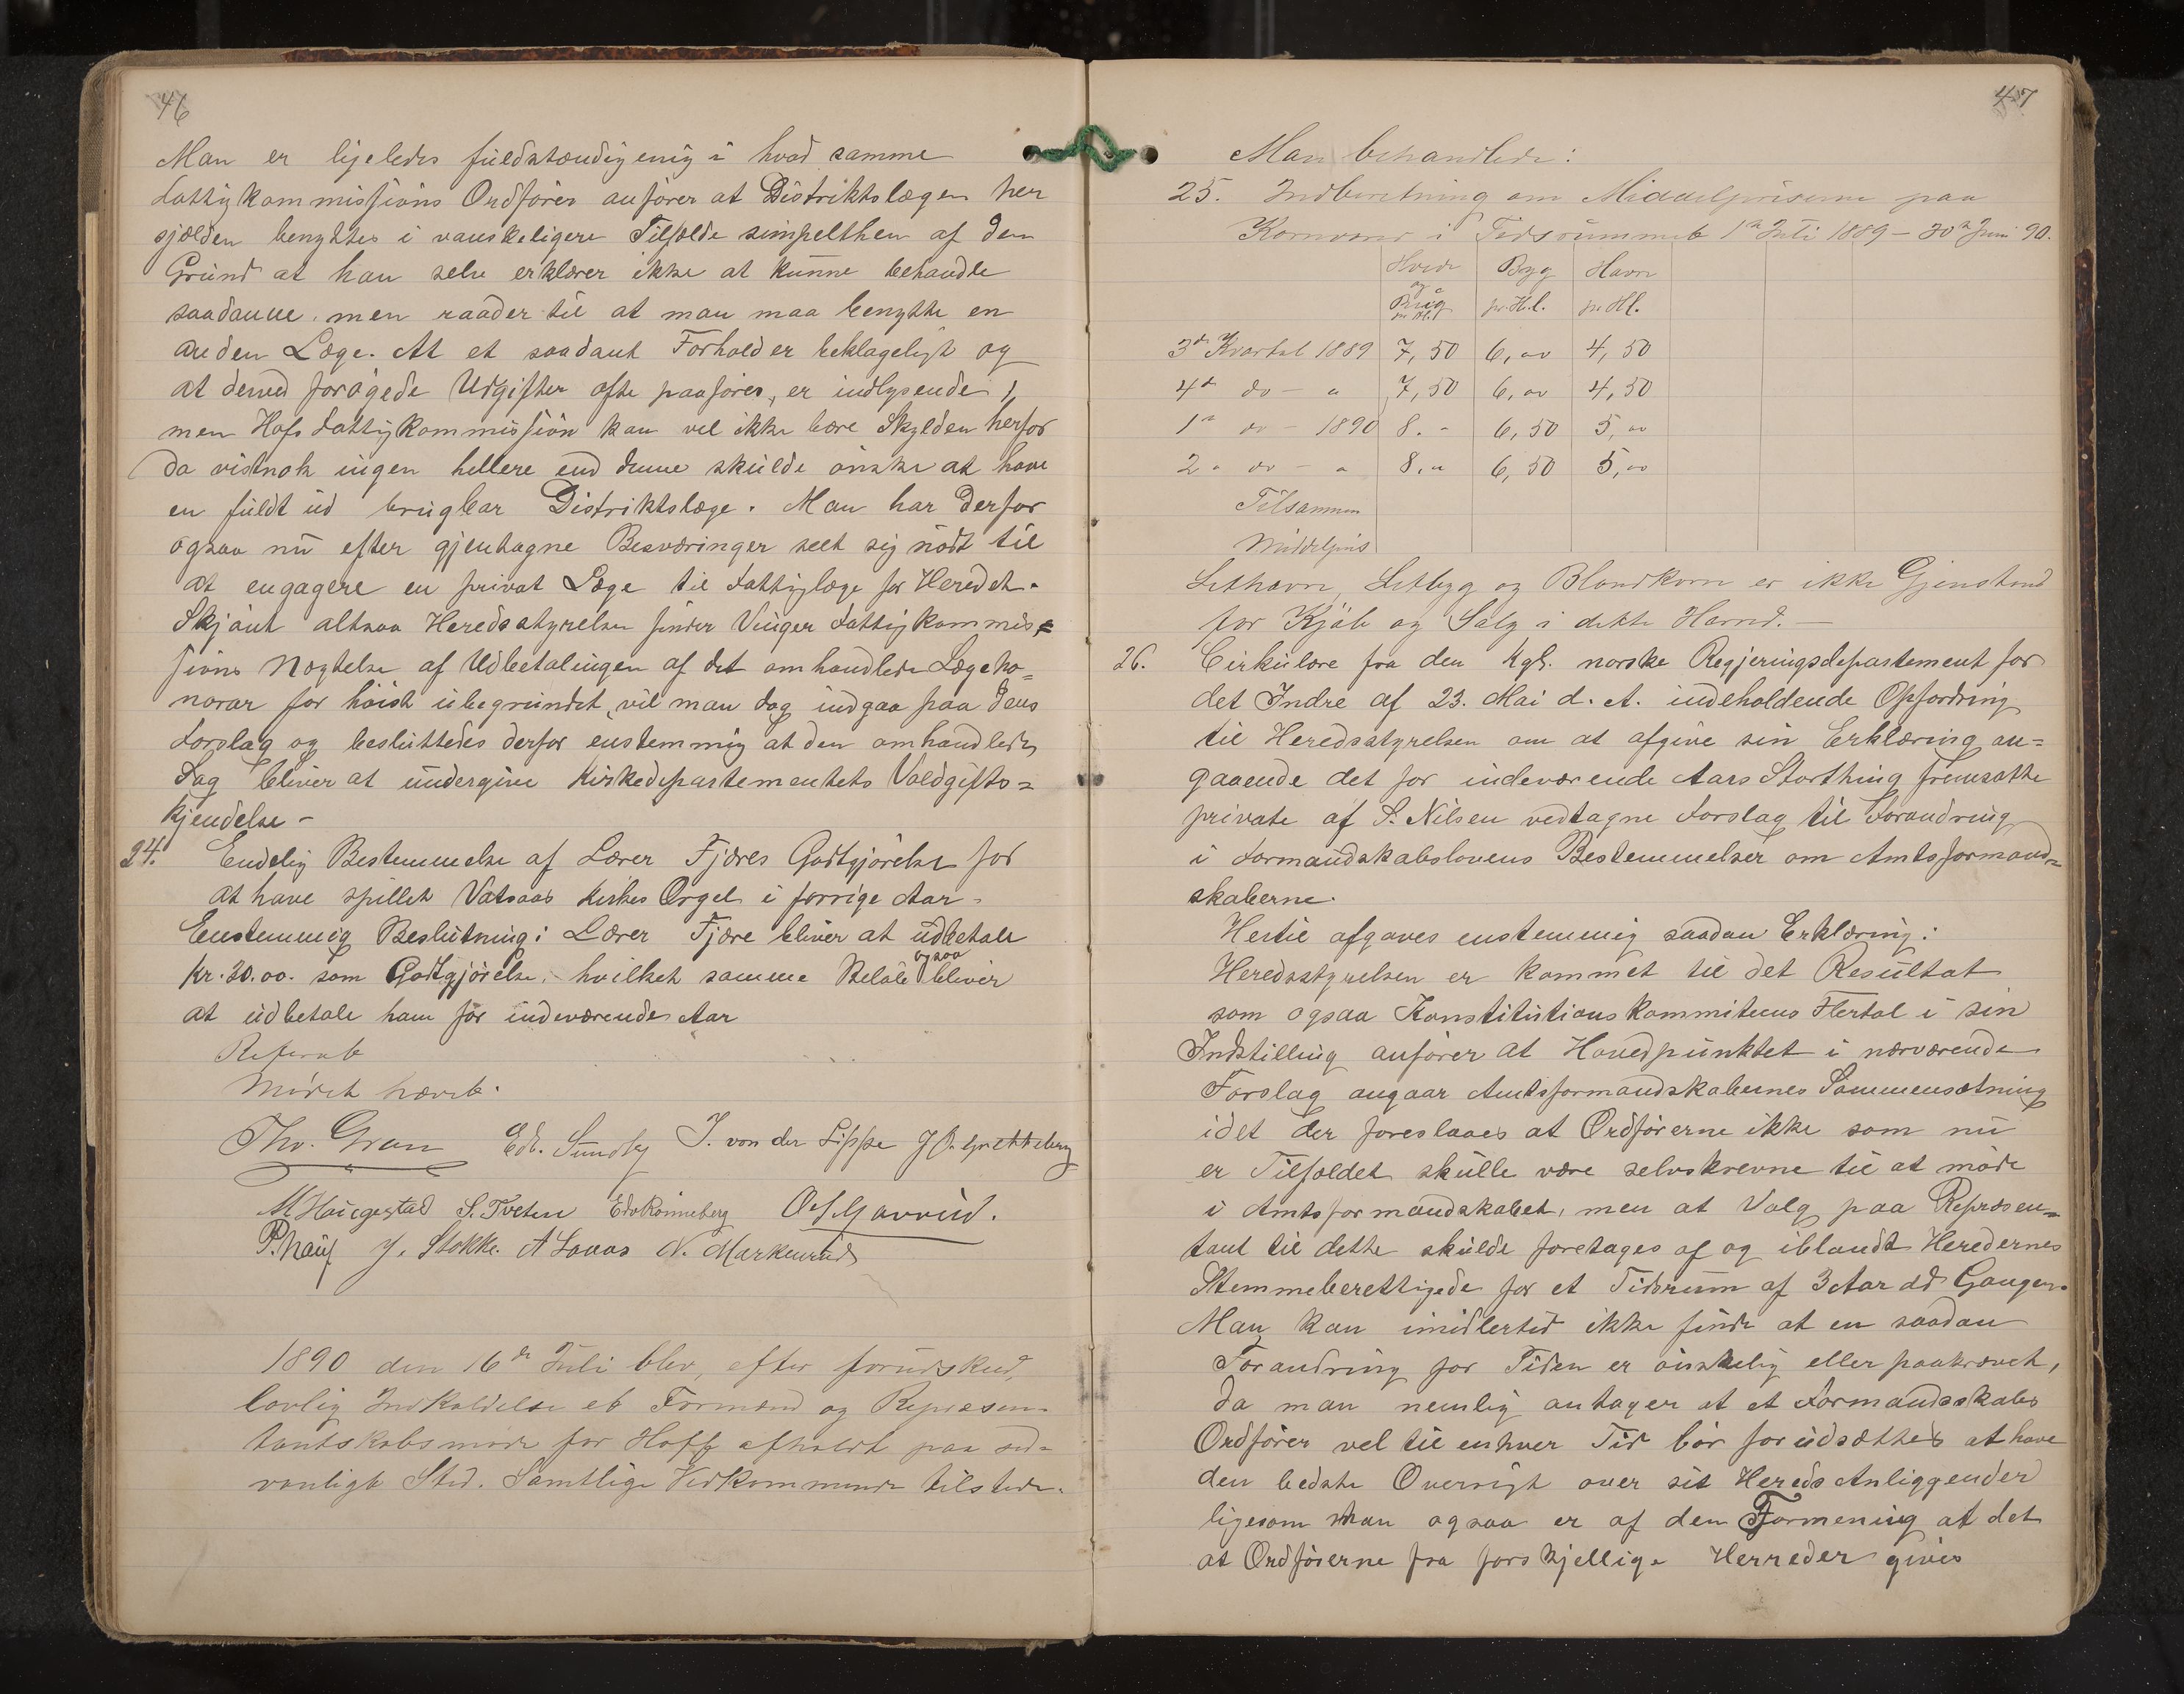 46
Man er ligeledes fuldstændig enig i hvad samme
Fattigkommissions Ordfører anfører at Distriktslægen her
sjælden benyttes i vanskeligere Tilfælde simpelthen af den
Grund at han selv erklærer ikke at kunne behandle
saadanne men raader til at man maa benytte en
anden Læge. At et saadant Forhold er beklageligt og
at derved forøgede Udgifter ofte paaføres, er indlysende,
men Hofs Fattigkommission kan vel ikke bære Skylden herfor
da vistnok ingen hellere end denne skulde ønske at have
en fuldt ud brugbar Distriktslæge. Man har derfor
ogsaa nu efter gjentagne Besværinger seet sig nødt til
at engagere en privat Læge til Fattiglæge for Heredet.
Skjønt altsaa Heredsstyrelsen finder Vinger Fattigkommis=
sions Nægtelse af Udbetalingen af det omhandlede Lægeho=
norar for høist ubegrundet, vil man dog indgaa paa dens
Forslag og besluttedes derfor enstemmig at den omhandlede
Sag bliver at undergive Kirkedepartementets Voldgifts=
kjendelse -
24. Endelig Bestemmelse af Lærer Fjæres Godtgjørelse for
at have spillet Vatsaas Kirkes Orgel i forrige Aar.
Enstemmig Beslutning: Lærer Fjære bliver at udbetale
Kr. 20.00. som Godtgjørelse, hvilket samme Beløb ogsaa bliver
at udbetale ham for indeværende Aar
Referat
Mødet hævet.
Thv. Gran Edv. Sundby J. von der Lippe
M Haugestad S. Tveten Edv Rønneberg
J. Stokke. N. Markerud
1890 den 16de Juli blev, efter forudskud,
lovlig Indkaldelse et Formand og Repræsen-
tantskabsmøde for Hoff afholdt paa sæd-
vanligt Sted. Samtlige Vedkommende tilstede.
47
Man behandlede:
25. Indberetning om Middelpriserne paa
Kornvarer i Tidsrummet 1ste Juli 1889 - 30te Juni 90.
Hvede og Rug pr Hl. Byg pr. H.l. Havre pr Hl.
3de Kvartal 1889 7,50 6,00 4,50
4de do - " 7,50 6,00 4,50
1ste do - 1890 8. - 6,50 5,00
2 " do - " 8. " 6,50 5,00
Tilsammen
Middelpris
Lethavre, Letbyg og Blandkorn er ikke Gjenstand
for Kjøb og Salg i dette Herred. -
26. Cirkulære fra den kgl. norske Regjeringsdepartement for
det Indre af 23. Mai d. A. indeholdende Opfordring
til Heredsstyrelsen om at afgive sin Erklæring an=
gaaende det for indeværende Aars Storthing fremsatte
private af S. Nilsen vedtagne Forslag til Forandring
i Formandskabslovens Bestemmelser om Amtsformand=
skaberne.
Hertil afgaves enstemmig saadan Erklæring:
Heredsstyrelsen er kommet til det Resultat
som ogsaa Konstitutionskommiteens Flertal i sin
Indstilling anfører at Hovedpunktet i nærværende
Forslag angaar Amtsformandskabernes Sammensætning
idet der foreslaaes at Ordførerne ikke som nu
er Tilfældet skulle være selvskrevne til at møde
i Amtsformandskabet, men at Valg paa Repræsen=
tant til dette skulde foretages af og iblandt Heredernes
Stemmeberettigede for et Tidsrum af 3 Aar ad Gangen.
Man kan imidlertid ikke finde at en saadan
Forandring for Tiden er ønskelig eller paakrævet,
da man nemlig antager at et Formandsskabs
Ordfører vel til enhver Tid bør forudsættes at have
den bedste Oversigt over sit Hereds Anliggender
ligesom man ogsaa er af den Formening at det
at Ordførerne fra forskjellige Herreder gives